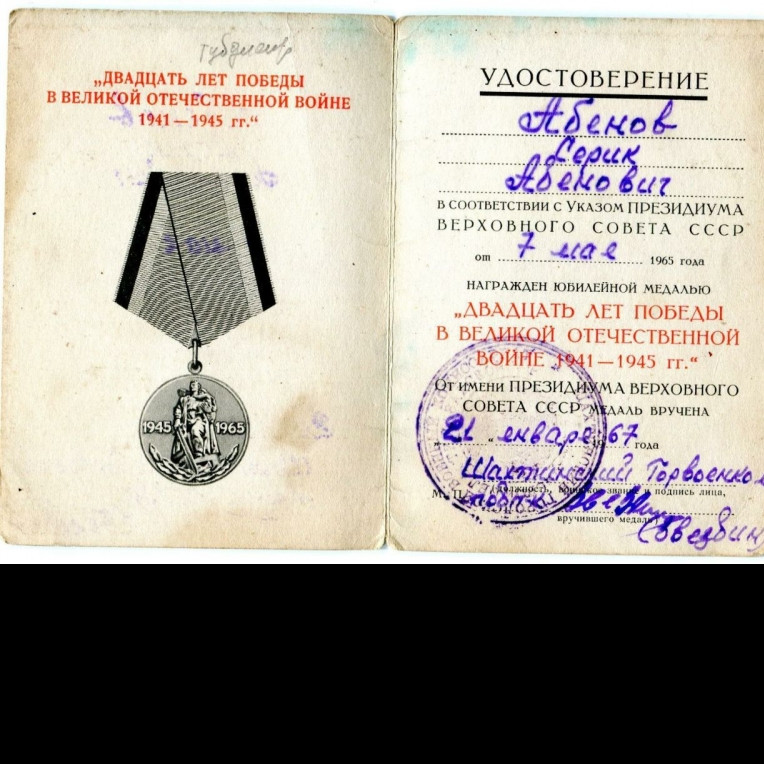 „ДВАДЦАТЬ ЛЕТ ПОБЕДЫ
В ВЕЛИКОЙ ОТЕЧЕСТВЕННОЙ ВОЙНЕ
1941—1945 гг.“
1945 1965
УДОСТОВЕРЕНИЕ
Абенов
Серик
Абенович
В СООТВЕТСТВИИ С УКАЗОМ ПРЕЗИДИУМА
ВЕРХОВНОГО СОВЕТА СССР
от 7 мая 1965 года
НАГРАЖДЕН ЮБИЛЕЙНОЙ МЕДАЛЬЮ
„ДВАДЦАТЬ ЛЕТ ПОБЕДЫ
В ВЕЛИКОЙ ОТЕЧЕСТВЕННОЙ
ВОЙНЕ 1941—1945 гг.“
ОТ ИМЕНИ ПРЕЗИДИУМА ВЕРХОВНОГО
СОВЕТА СССР МЕДАЛЬ ВРУЧЕНА
„21“ января 1967 года
Шахтинский Горвоенком
(должность, воинское звание и подпись лица,
М. П. подп-к
вручившего медаль)